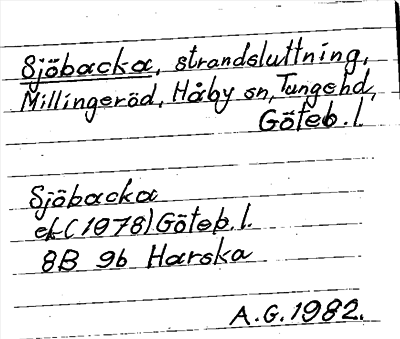 Sjöbacka, strandsluttning,
Millingeröd, Håby sn, Tungehd,
Göteb. l.
Sjöbacka
ek (1978) Göteb. l.
8B 9b Harska
A.G. 1982.